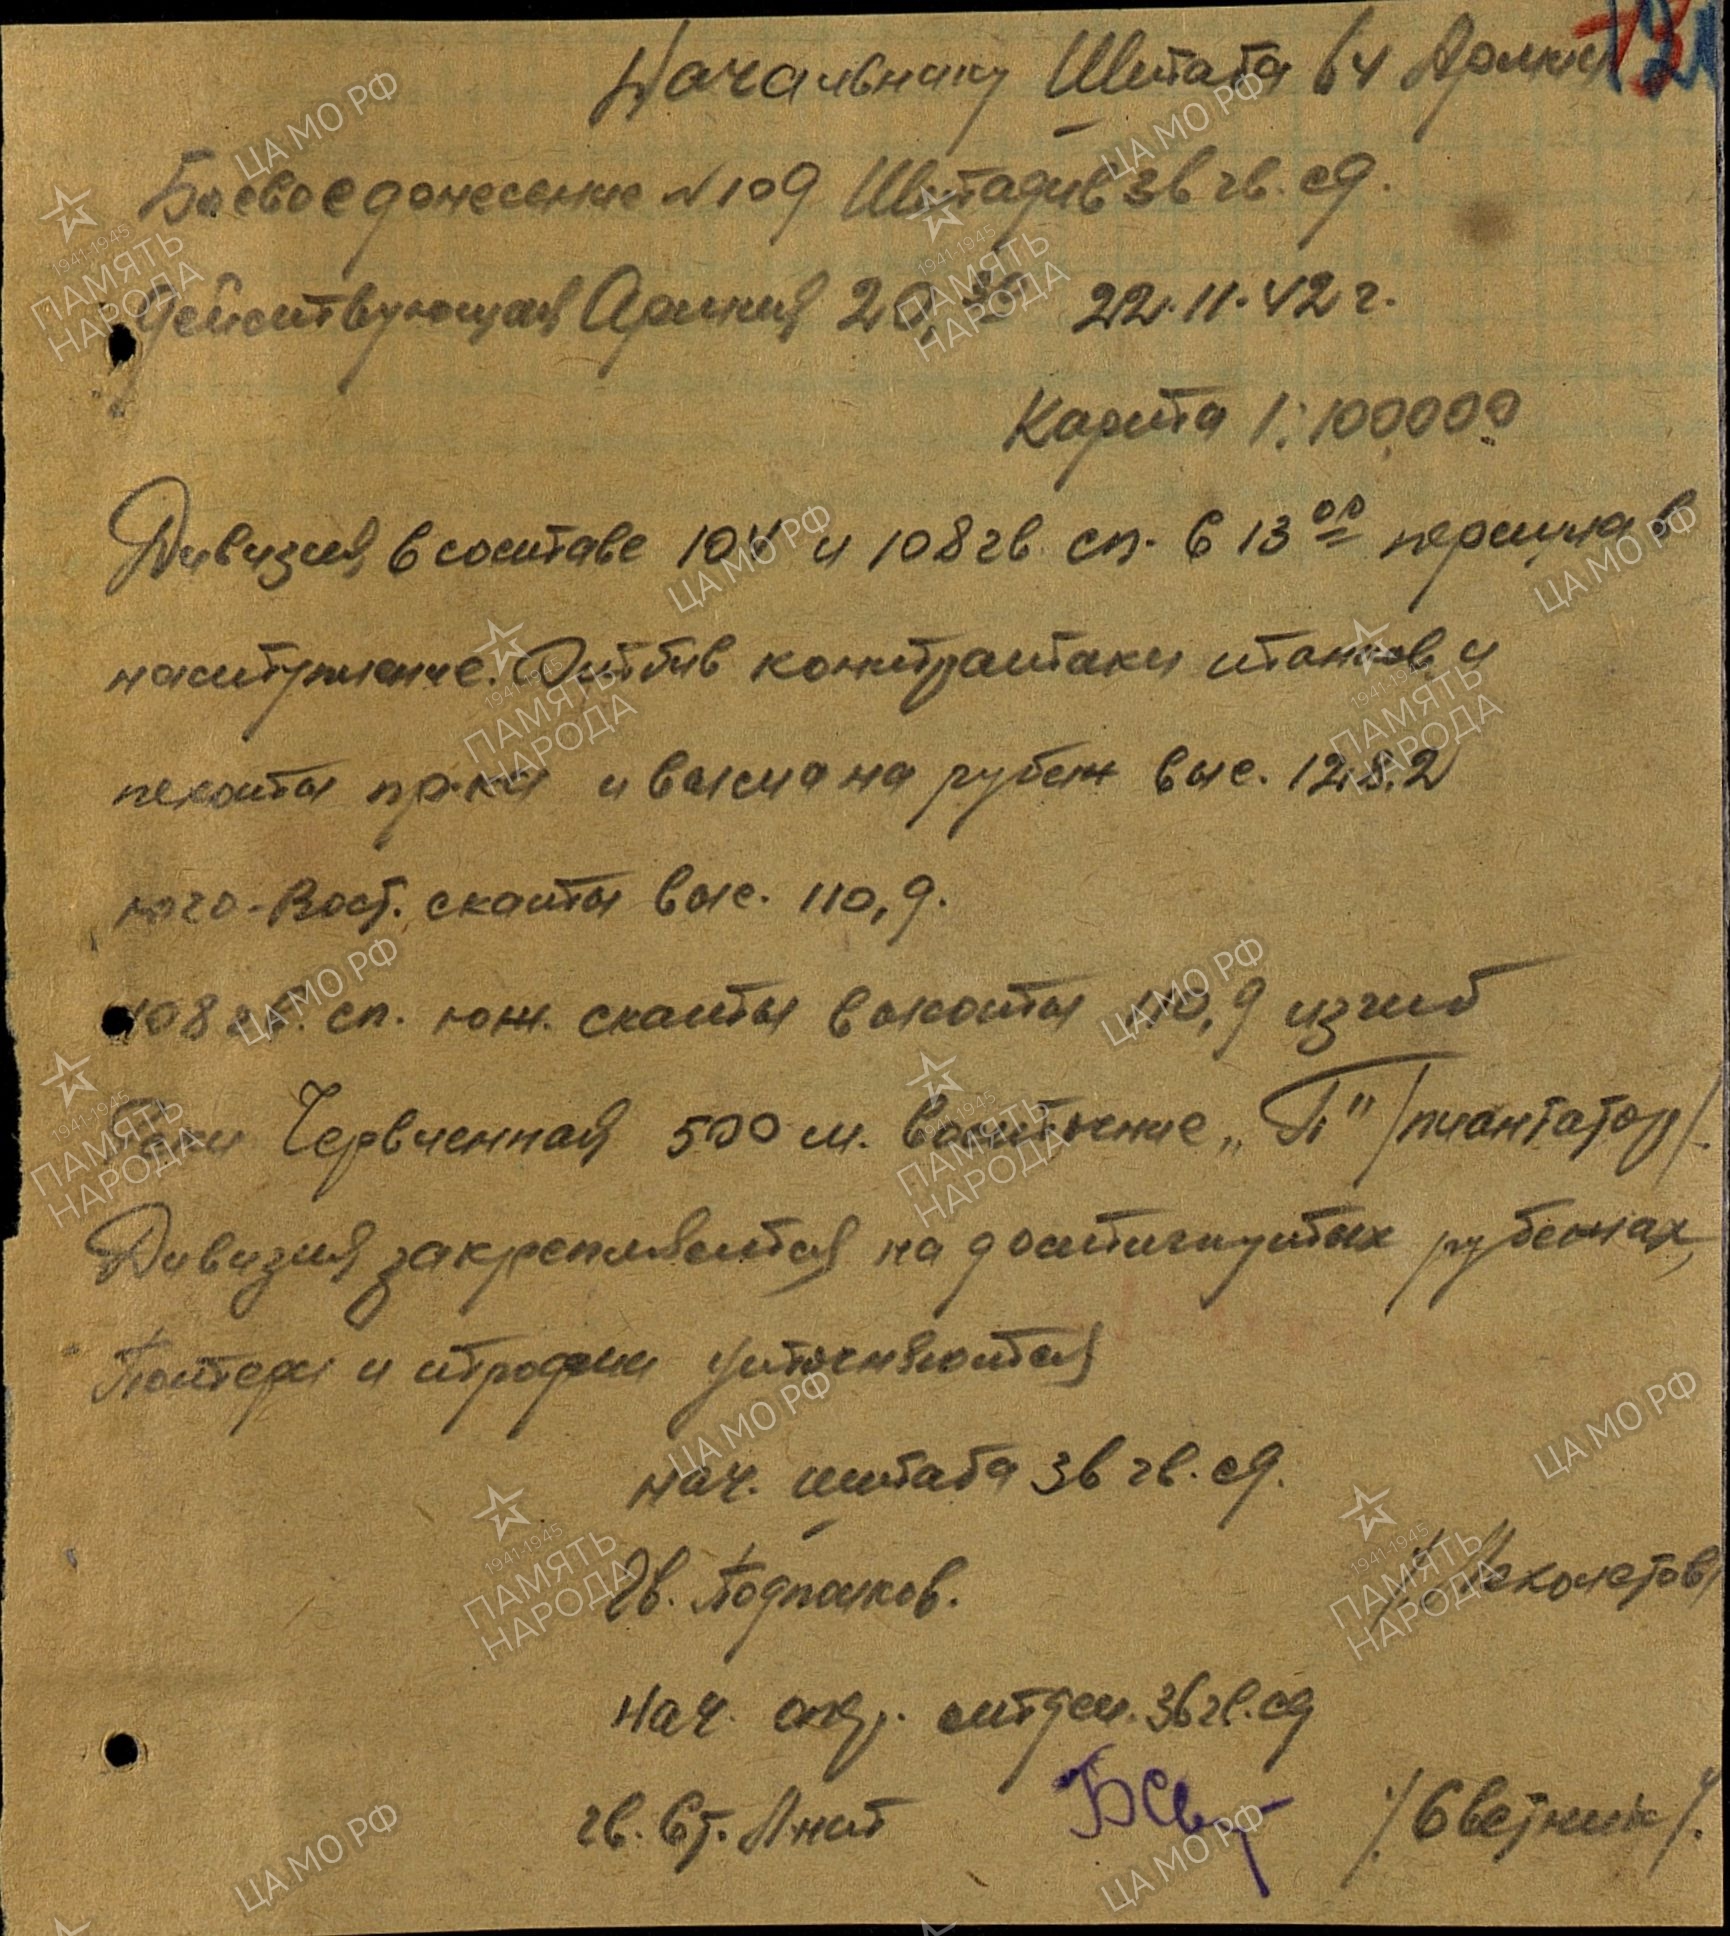 Начальнику Штаба 64 Армии
Боевое донесение №109 Штадив 36 гв. сд.
Действующая Армия 20,30 22.11.42 г.
Карта 1:100000
Дивизия в составе 104 и 108 гв. сп. в 13 00 перешла в
наступление. Отбив контратаки танков и
пехоты пр-ка и вышла на рубеж выс. 128.2
юго-вост. скаты выс. 110,9.
108 гв. сп. юж. скаты высоты 110,9 изгиб
Реки Червленная 500 м. восточнее „П" /плантатор/.
Дивизия закрепляется на достигнутых рубежах,
Потери и трофеи уточняются
нач. штаба 36 гв. сд.
Гв. Подполков.
нач. опер. отдел. 36 гв. сд
гв. Ст. Л-нит /Светник/.
ЦА МО РФ
1941-1945
ПАМЯТЬ
НАРОДА